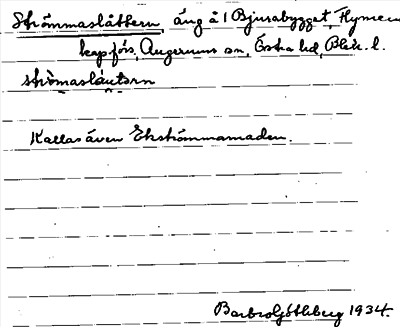 Strömmaslåttern, äng å 1 Bjurabygget, Flymen
kapförs. Augerums sn, Östra hd, Blek. l.
strömaslåutərn
Kallas även Ekströmmamaden.
Barbro Göthberg 1934.